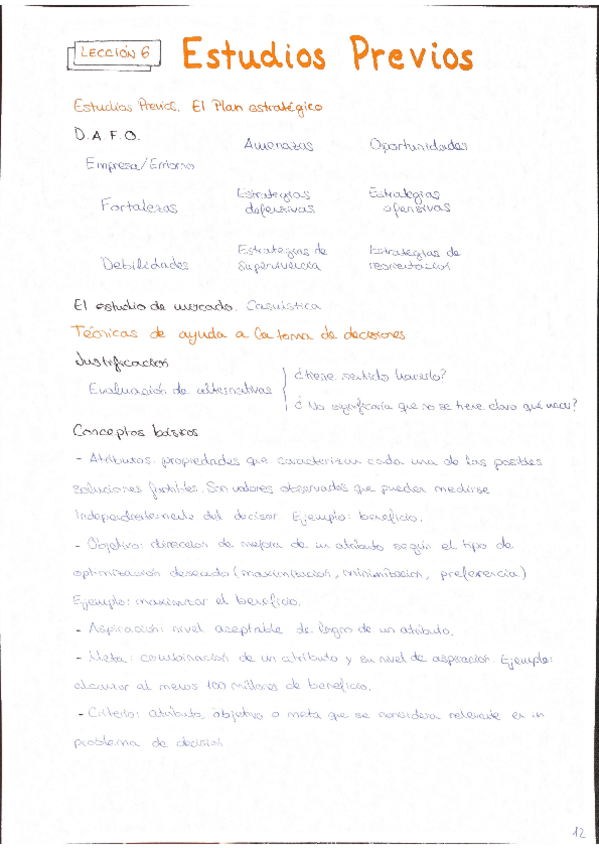 LECCIÓN 6 Estudios Previos
Estudios Previos. El Plan estratégico
D.A.F.O.
Amenazas Oportunidades
Empresa/Entorno
Fortalezas Estrategias defensivas Estrategias ofensivas
Debilidades Estrategias de supervivencia Estrategias de reorientación
El estudio de mercado. Casuística
Técnicas de ayuda a la toma de decisiones
Justificación
Evaluación de alternativas
¿tiene sentido hacerlo?
¿No significaría que no se tiene claro qué hacer?
Conceptos básicos
- Atributos: propiedades que caracterizan cada una de las posibles
soluciones factibles. Son valores observados que pueden medirse
independientemente del decisor. Ejemplo: beneficio.
- Objetivo: dirección de mejora de un atributo según el tipo de
optimización deseado (maximización, minimización, preferencia)
Ejemplo: maximizar el beneficio.
- Aspiración: nivel aceptable de logro de un atributo.
- Meta: combinación de un atributo y su nivel de aspiración. Ejemplo:
alcanzar al menos 100 millones de beneficio.
- Criterio: atributo, objetivo o meta que se considera relevante en un
problema de decisión
12